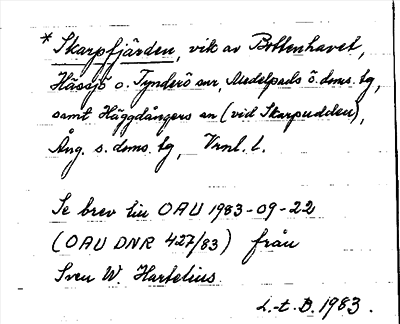 * Skarpfjärden, vik av Bottenhavet,
Hässjö o. Tynderö snr, Medelpads ö. doms. tg,
samt Häggdångers sn (vid Skarpudden),
Ång. s. doms. tg, Vrnl. l.
Se brev till OAU 1983-09-22
(OAU DNR 427/83) från
Sven W. Hartelius
L.-t. B. 1983.